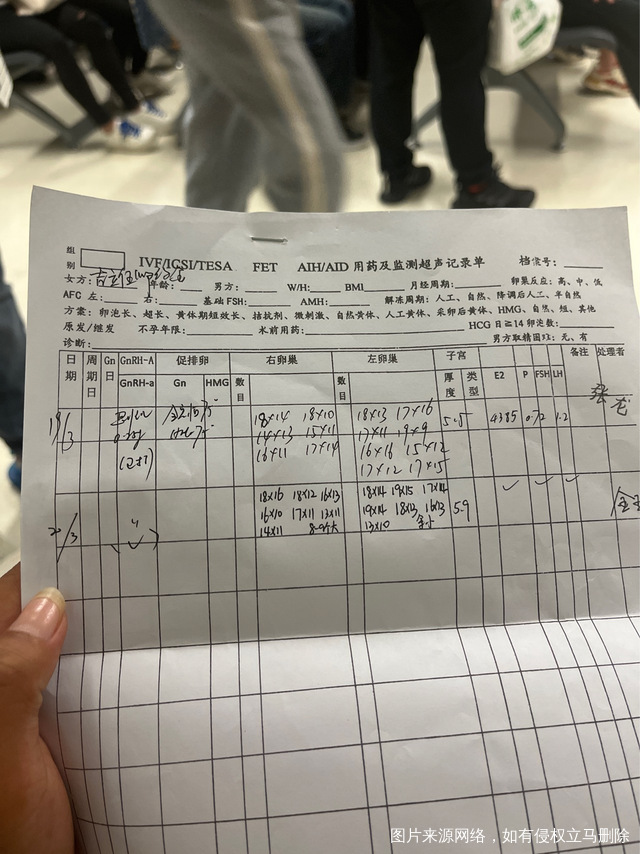 组别 IVF/ICSI/TESA FET AIH/AID 用药及监测超声记录单 档案号:
女方: 年龄: 男方: W/H: BMI 月经周期: 卵巢反应: 高、中、低
AFC 左: 右: 基础 FSH: AMH: 解冻周期: 人工、自然、降调后人工、半自然
方案: 卵泡长、超长、黄体期短效长、拮抗剂、微刺激、自然黄体、人工黄体、采卵后黄体、HMG、自然、短、其他
原发/继发 不孕年限: 术前用药: HCG 日≧14 卵泡数:
诊断: 男方取精困难: 无、有
日期 周期日 Gn日 GnRH-A 促排卵 右卵巢 左卵巢 子宫 备注 处理者
GnRH-a Gn HMG 数目 数目 厚度 类型 E2 P FSH LH
19/3 18×14 18×10 18×13 17×16 5.5 4385 0.72 1.2
14×13 15×11 17×11 9×9
16×11 17×14 16×16 15×12
17×12 17×15
20/3 18×16 18×12 16×13 18×14 19×15 17×14 ✓ ✓ ✓
16×10 17×11 13×11 19×14 18×13 16×13 5.9
14×11 13×10
(✓)
图片来源网络，如有侵权立马删除